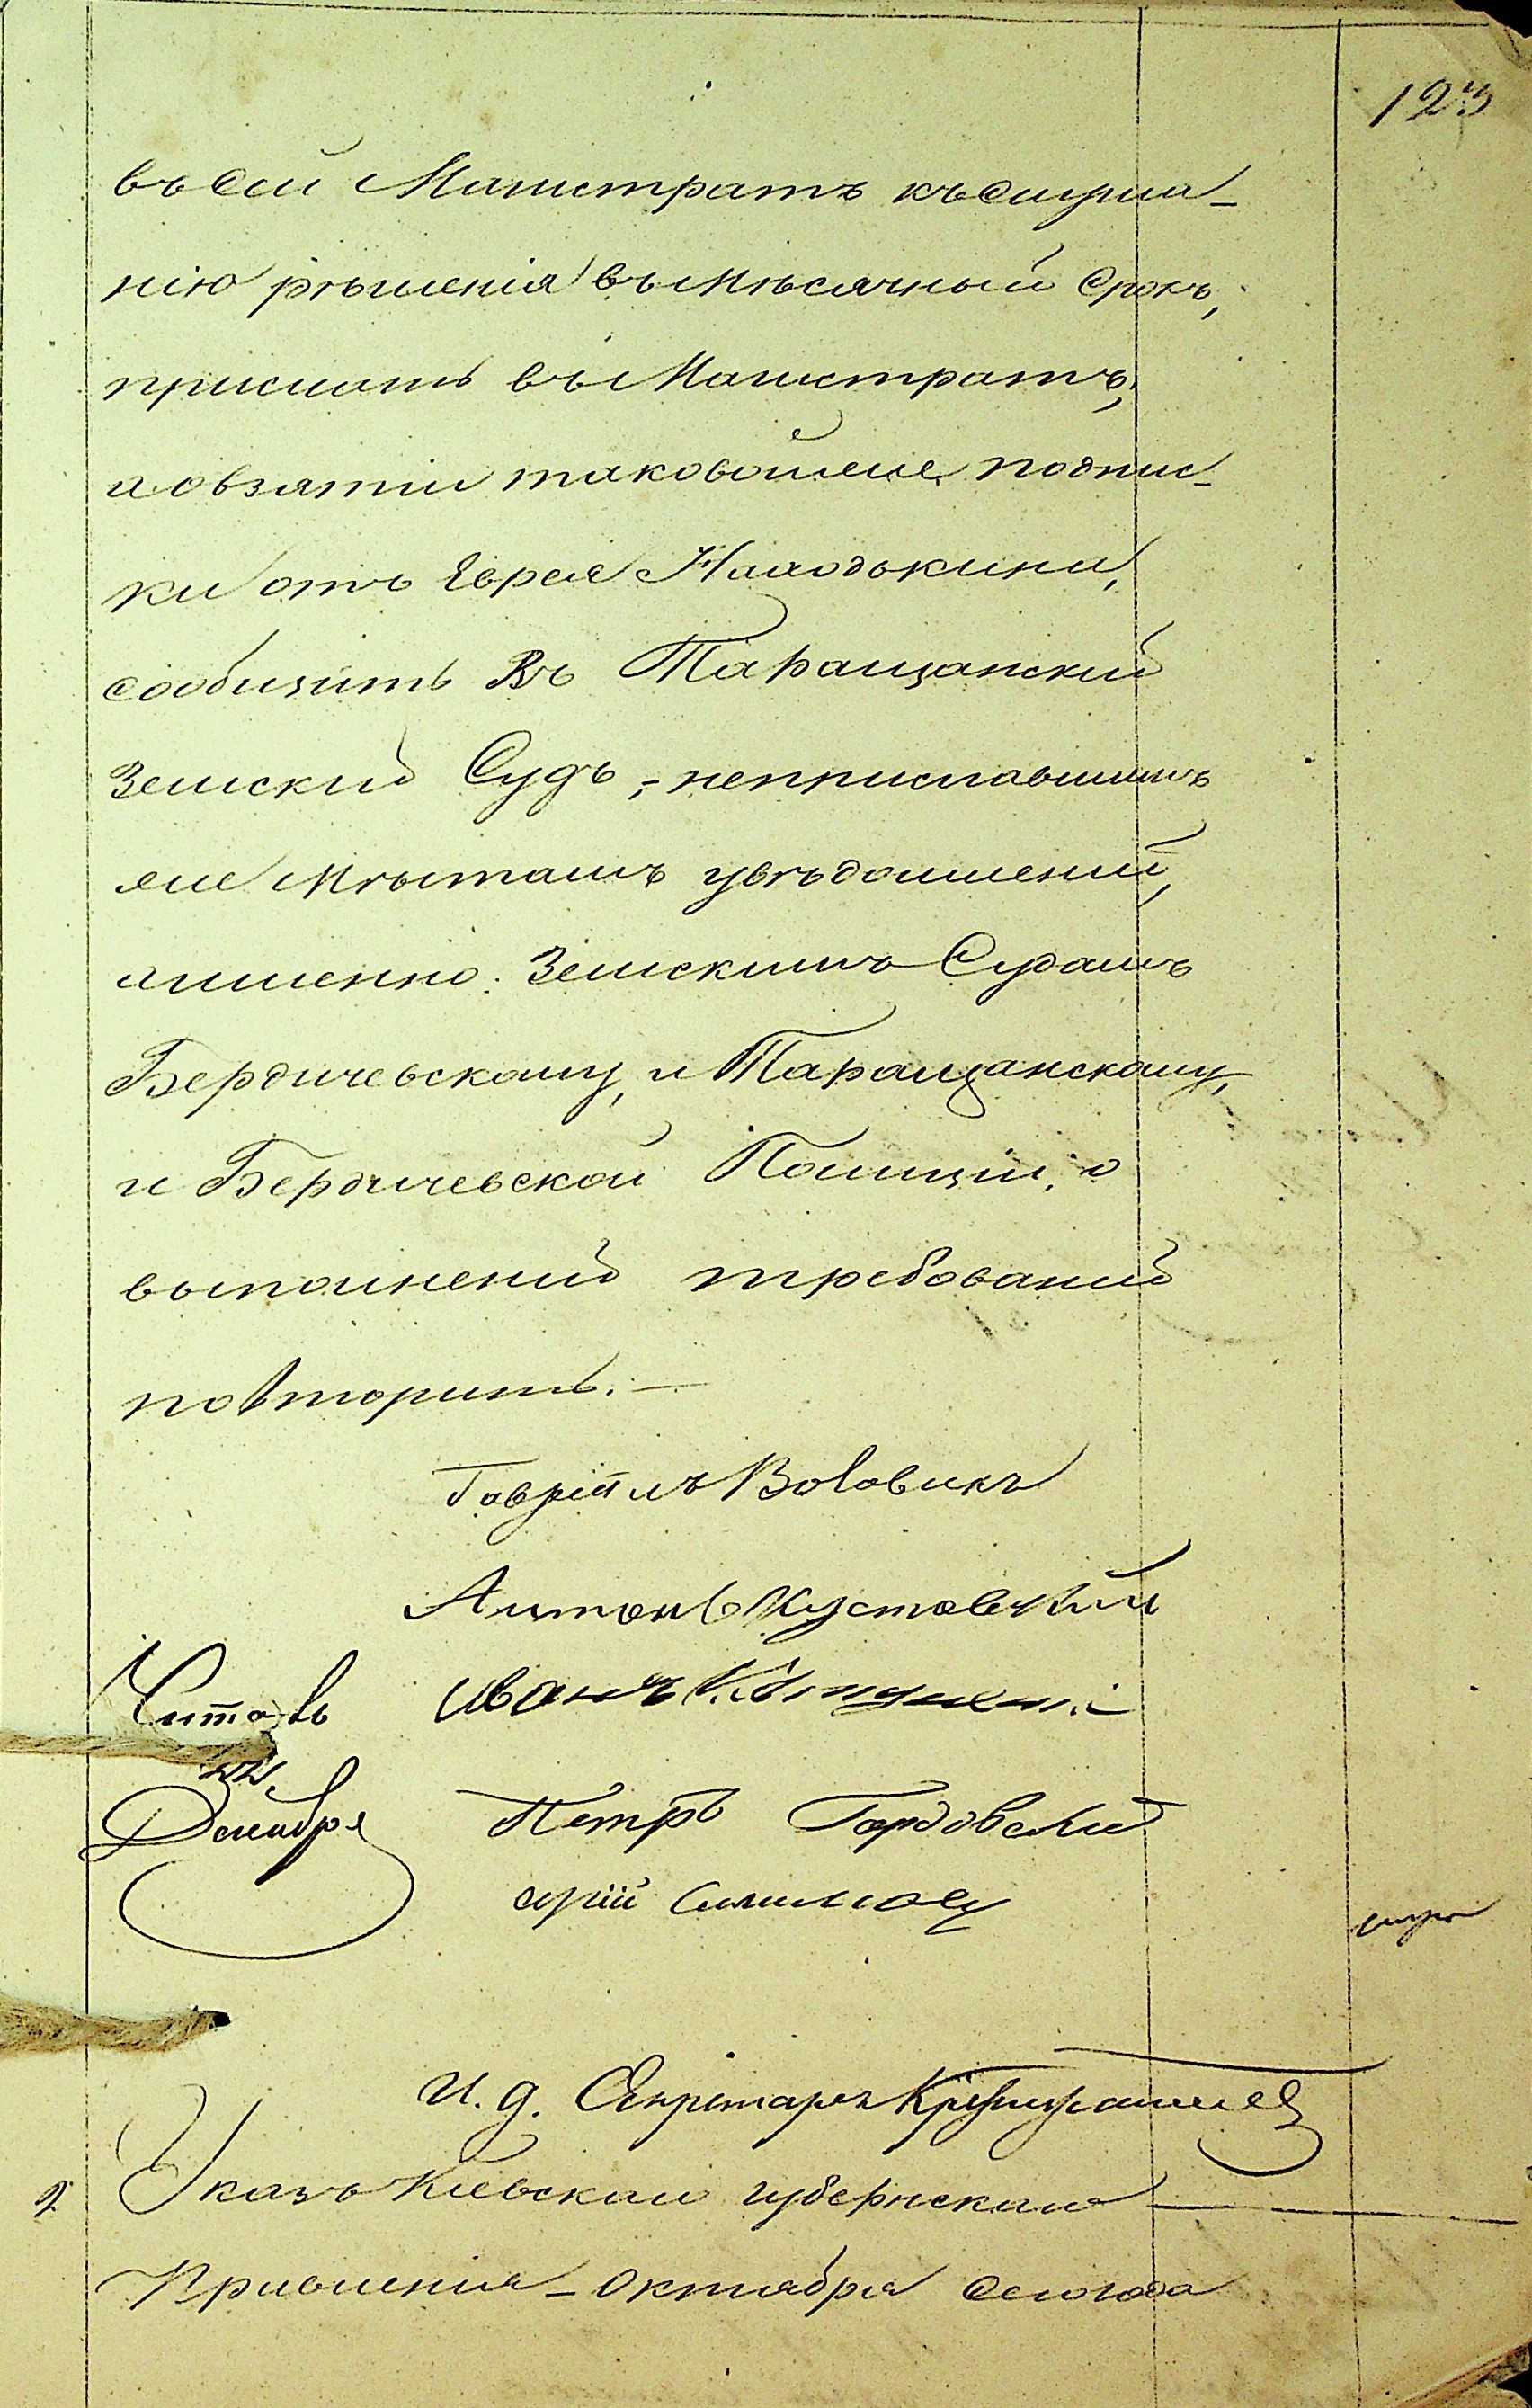 123
въ сей Магистратъ къ слуша-
нію рѣшенія въ мѣсячный срокъ,
прислать въ Магистратъ,
а о взятіи таковой же подпис-
ки отъ Еврея
сообщить Въ Таращанскій
Земскій Судъ, – неприславшимъ
же мѣстамъ увѣдомленій,
именно: Земскимъ Судамъ
Бердичевскому, и Таращанскому,
и Бердичевской Полиціи, о
выполненій требованій
повторить. —
Гавріилъ Воловикъ
Антонъ Кустовскій
Читалъ Иванъ
Декабря Петръ Гордовскій
И. д. Секретаря
2 Указъ Кіевскаго Губернскаго
Правленія – Октября сего года